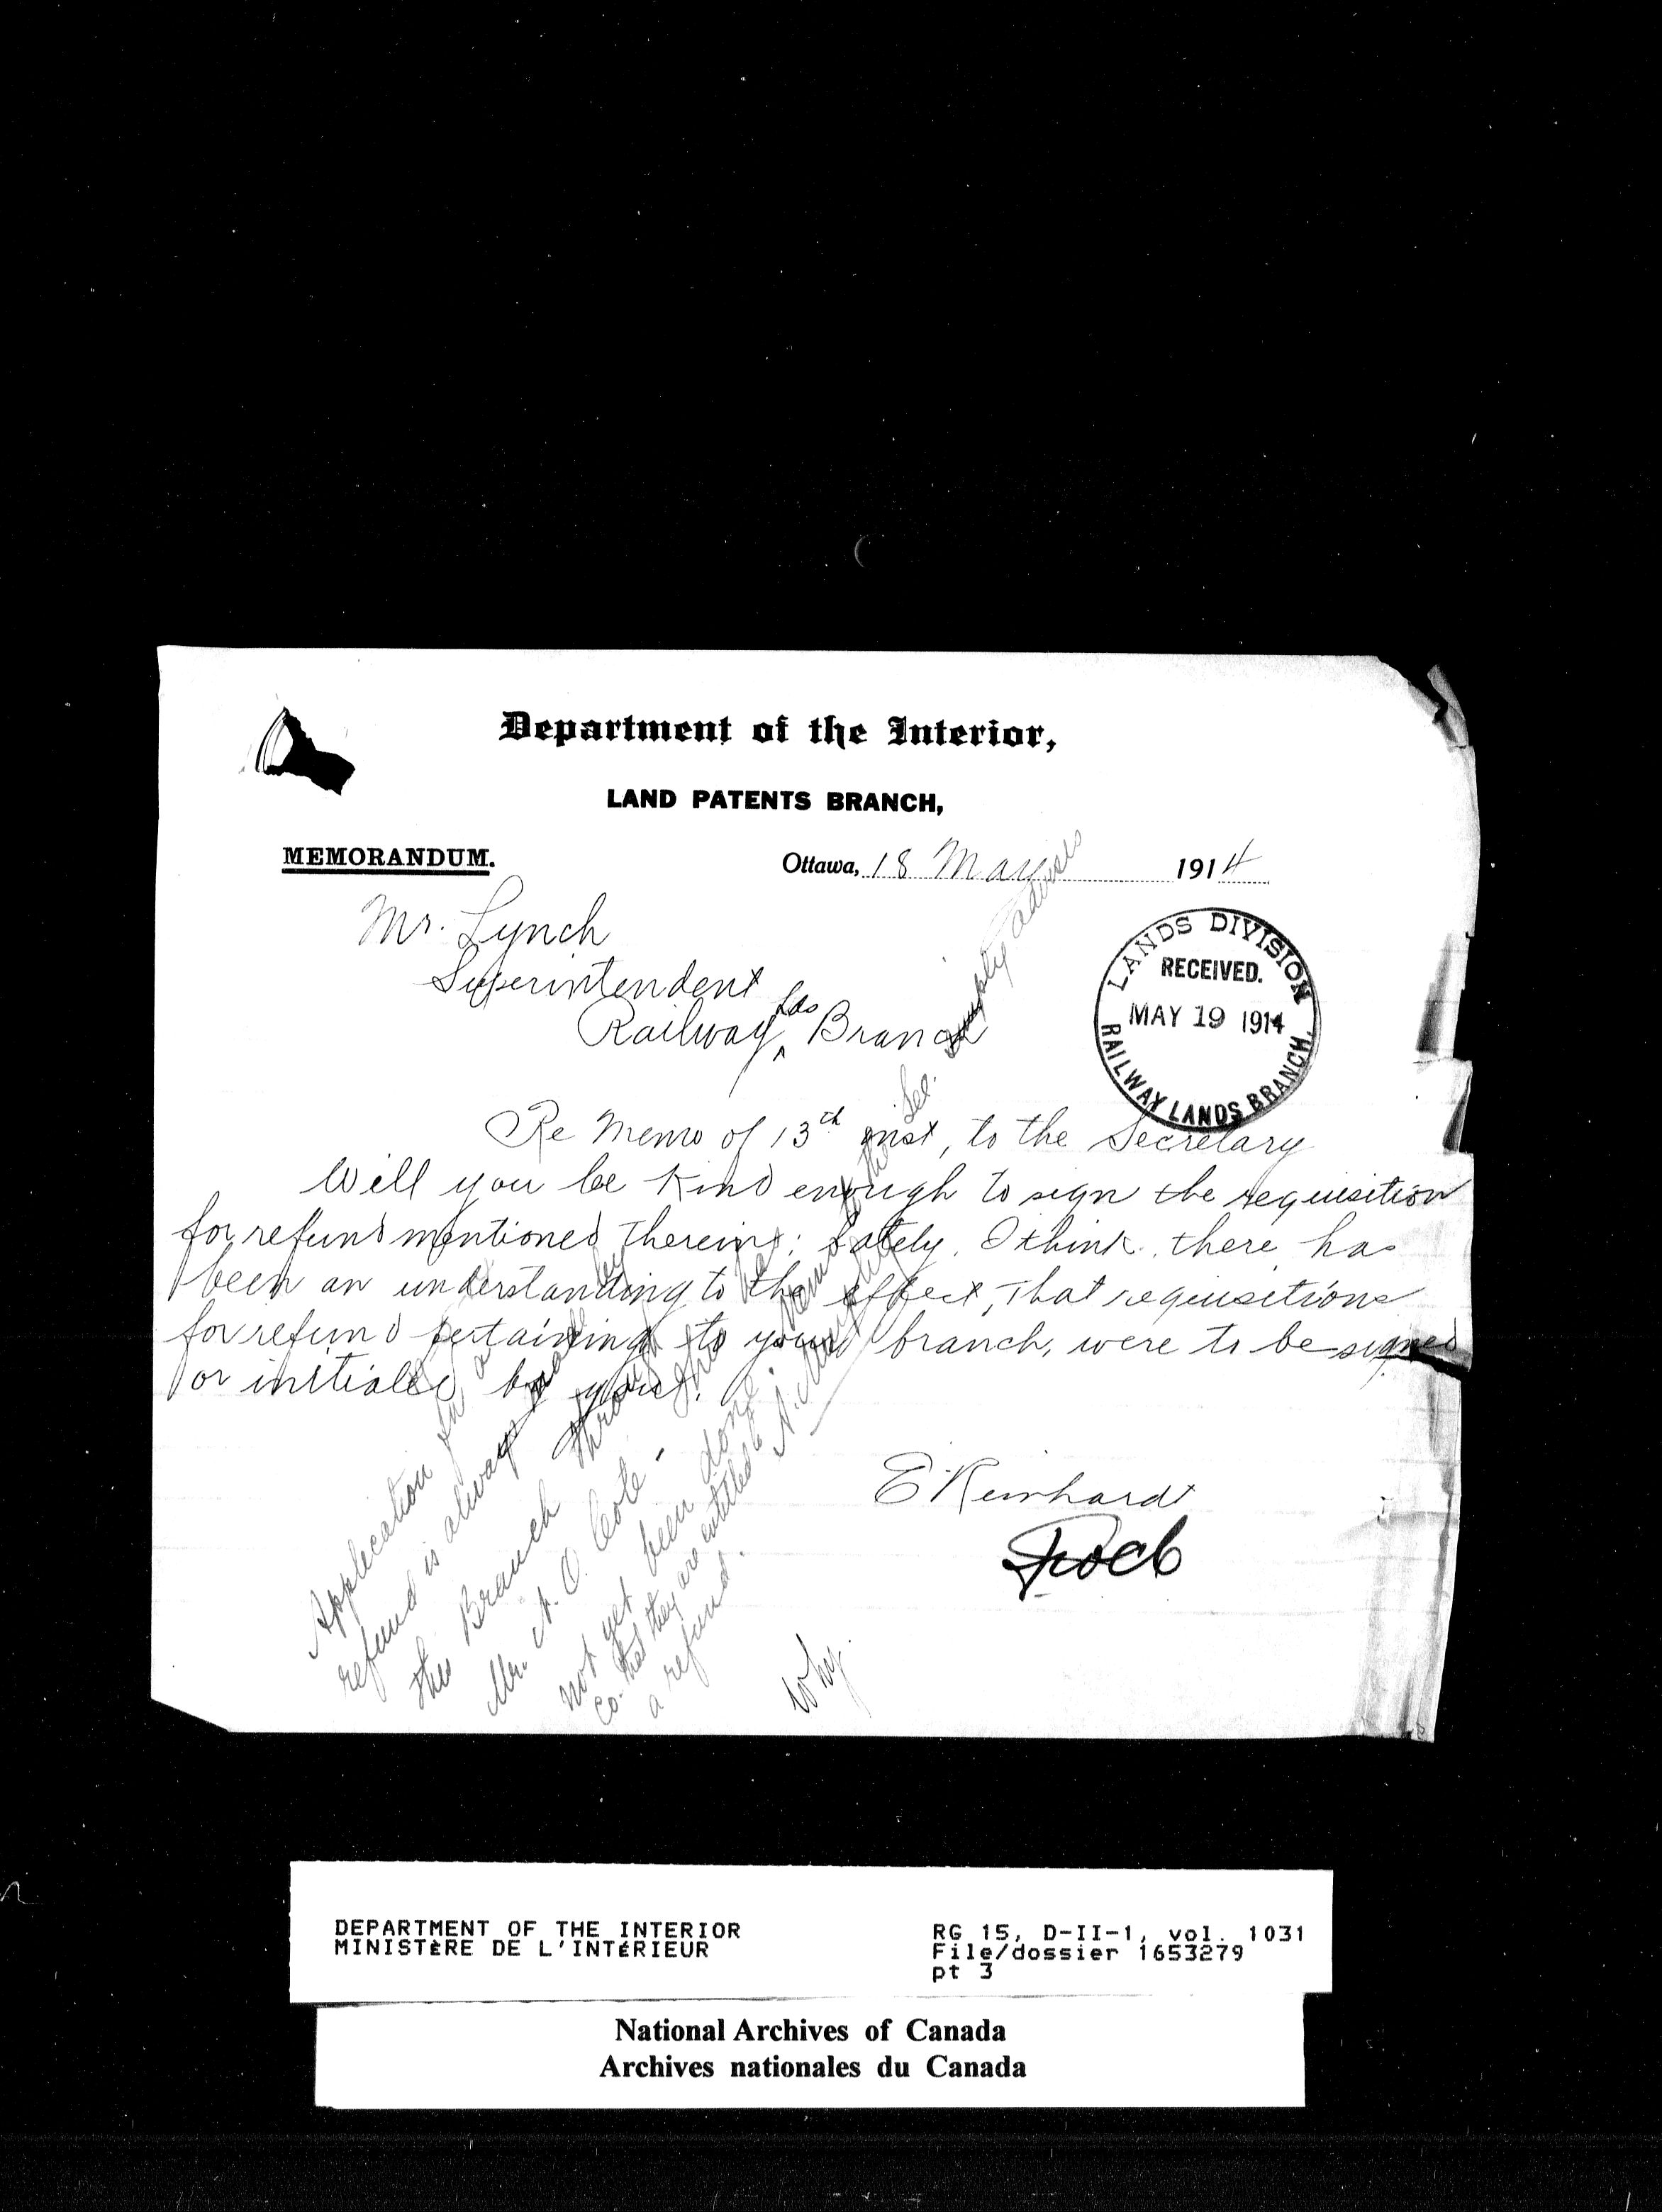 Department of the Interior,
LAND PATENTS BRANCH,
MEMORANDUM.
Ottawa, 18 May 1914
Mr. Lynch
Superintendent
Railway ^ Lds Branch
LANDS DIVISION
RECEIVED.
MAY 19 1914
RAILWAY LANDS BRANCH.
Re Memo of 13th inst, to the Secretary
Will you be kind enough to sign the requisition
for refund mentioned therein; Lately, I think, there has
been an understanding to the effect, that requisitions
for refund pertaining to your branch, were to be signed
or initialed by you.
E Reinhardt
Application for a
refund is always made by
this Branch through
Mr. N. O. Cote - 
not yet been done.
Co. that they are entitled to
a refund.
the Sec. simply advises
Why.
DEPARTMENT OF THE INTERIOR
MINISTÈRE DE L'INTÉRIEUR
RG 15, D-II-1, vol. 1031
File/dossier 1653279
pt 3
National Archives of Canada
Archives nationales du Canada